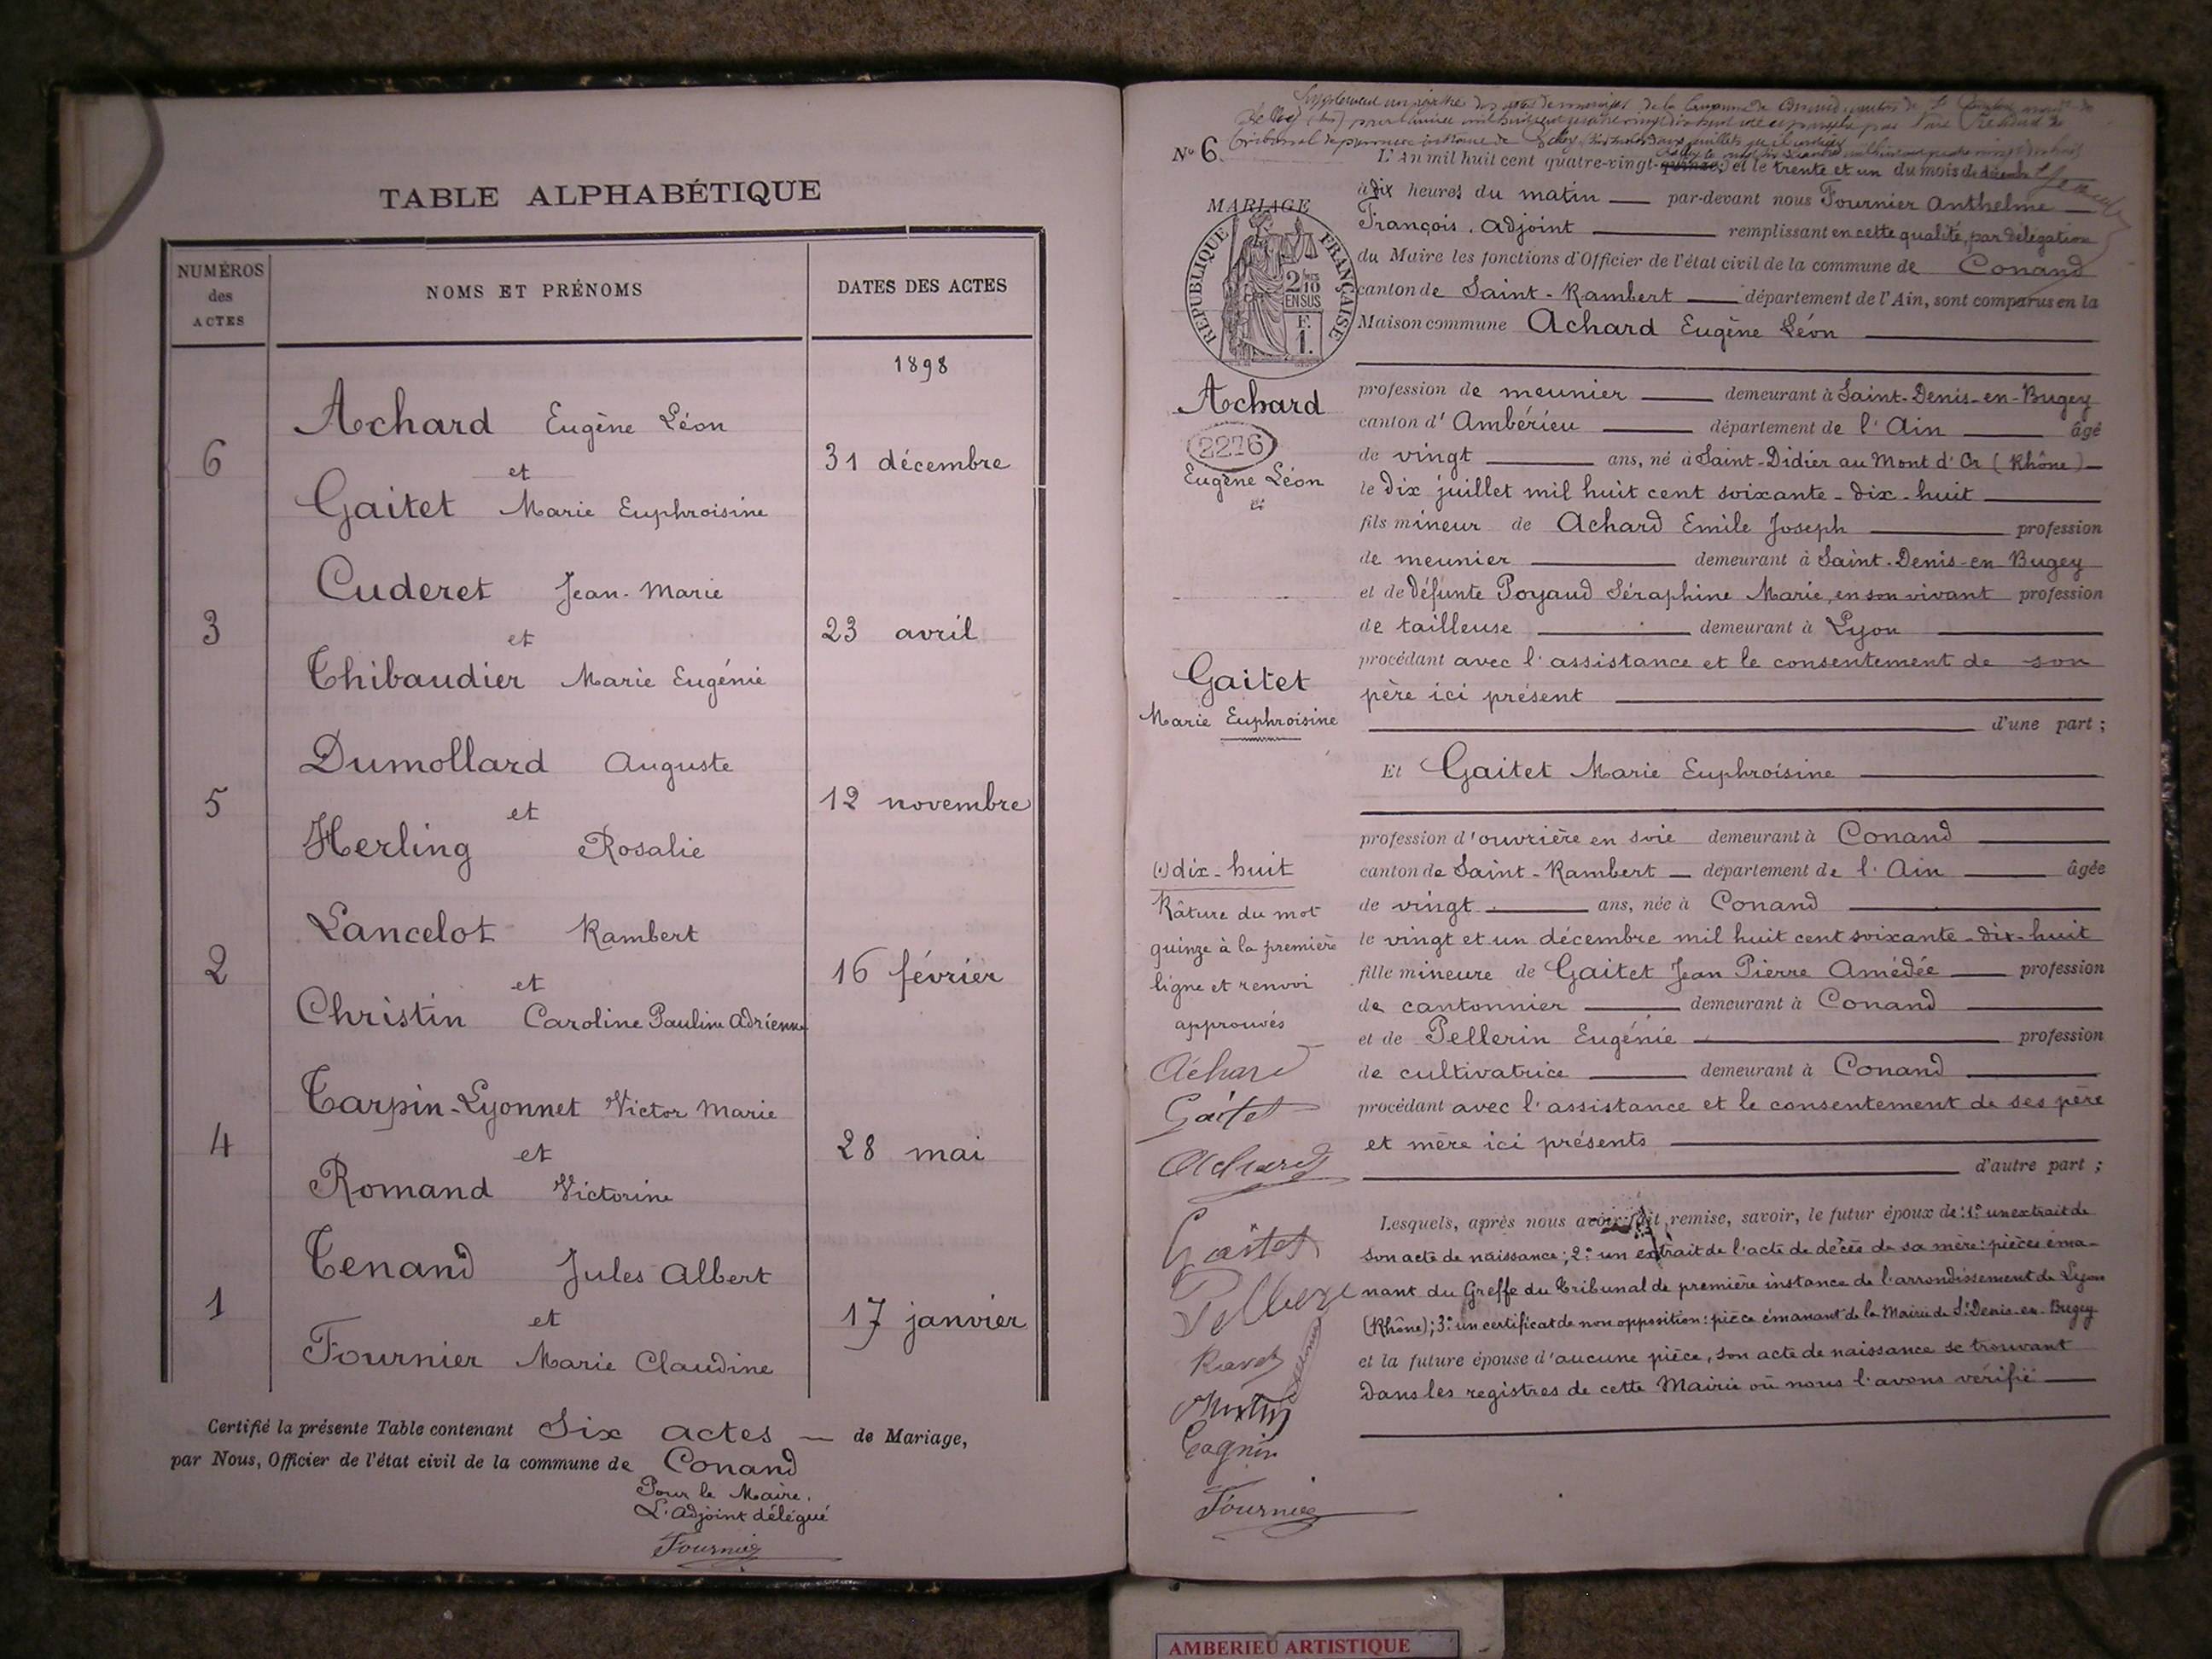 TABLE ALPHABÉTIQUE
NUMÉROS des ACTES
NOMS ET PRÉNOMS
DATES DES ACTES
1898
Achard Eugène Léon
6 et 31 décembre
Gaitet Marie Euphroisine
Cuderet Jean-Marie
3 et 23 avril
Thibaudier Marie Eugénie
Dumollard Auguste
5 et 12 novembre
Herling Rosalie
Lancelot Rambert
2 et 16 février
Christin Caroline Pauline Adrienne
Tarpin-Lyonnet Victor Marie
4 et 28 mai
Romand Victorine
Tenand Jules Albert
1 et 17 janvier
Fournier Marie Claudine
Certifié la présente Table contenant Six actes — de Mariage,
par Nous, Officier de l'état civil de la commune de Conand
Pour le Maire,
L'adjoint délégué
Fournier
N° 6.
MARIAGE
REPUBLIQUE FRANÇAISE
2/10 EN SUS
F. 1.
Achard
2276
Eugène Léon
et
Gaitet
Marie Euphroisine
(1) dix-huit
Râture du mot
quinze à la première
ligne et renvoi
approuvés
Achard
Gaitet
Achard
Gaitet
Ravet
Gagnin
Fournier
L'An mil huit cent quatre-vingt-quinze, et le trente et un du mois de décembre
à dix heures du matin — par-devant nous Fournier Anthelme
François, adjoint — remplissant en cette qualité, par délégation
du Maire les fonctions d'Officier de l'état civil de la commune de Conand
canton de Saint-Rambert — département de l'Ain, sont comparus en la
Maison commune Achard Eugène Léon
profession de meunier — demeurant à Saint-Denis-en-Bugey
canton d'Ambérieu — département de l'Ain — âgé
de vingt — ans, né à Saint-Didier au Mont d'Or (Rhône)
le dix juillet mil huit cent soixante-dix-huit
fils mineur de Achard Emile Joseph — profession
de meunier — demeurant à Saint-Denis-en Bugey
et de défunte Poyaud Séraphine Marie, en son vivant profession
de tailleuse — demeurant à Lyon
procédant avec l'assistance et le consentement de son
père ici présent
d'une part ;
Et Gaitet Marie Euphroisine
profession d'ouvrière en soie demeurant à Conand
canton de Saint-Rambert — département de l'Ain — âgée
de vingt — ans, née à Conand
le vingt et un décembre mil huit cent soixante-dix-huit
fille mineure de Gaitet Jean Pierre Amédée — profession
de cantonnier — demeurant à Conand
et de Pellerin Eugénie — profession
de cultivatrice — demeurant à Conand
procédant avec l'assistance et le consentement de ses père
et mère ici présents
d'autre part ;
Lesquels, après nous avoir fait remise, savoir, le futur époux de : 1° un extrait de
son acte de naissance ; 2° un extrait de l'acte de décès de sa mère : pièces éma-
nant du Greffe du Tribunal de première instance de l'arrondissement de Lyon
(Rhône) ; 3° un certificat de non opposition : pièce émanant de la Mairie de St Denis-en-Bugey
et la future épouse d'aucune pièce, son acte de naissance se trouvant
dans les registres de cette Mairie où nous l'avons vérifié
AMBERIEU ARTISTIQUE